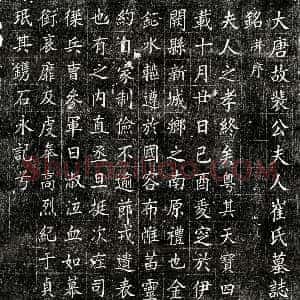 大唐故裴公夫人崔氏墓誌
銘并序
夫人之孝終矣粵其天寶四
載十月廿日己酉爰窆於伊
闕縣新城鄉之南原禮也
水輴遵於國容布帷靈
約自家制儉不逾節戒遺表
也有之內直丞且挺次左司
兵曹參軍曰淑泣血如慕
銜哀靡及虔奉高烈紀于貞
珉其鐫石永記兮